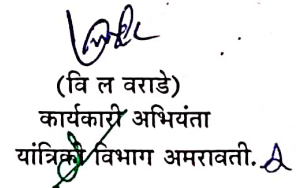 (वि ल वराडे)
कार्यकारी अभियंता
यांत्रिकी विभाग अमरावती.